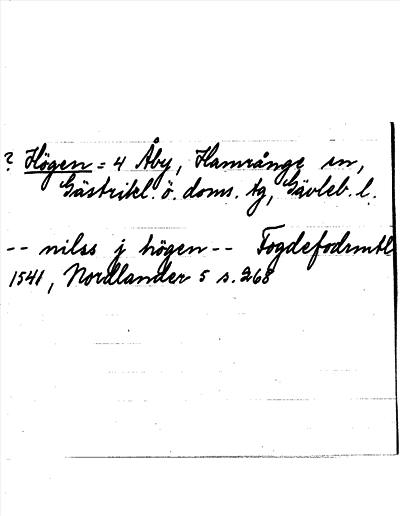 ? Högen = 4 Åby, Hamrånge sn,
Gästrikl. ö. doms. tg, Gävleb. l.
-- nilss j högen -- Fogdefodrmtl
1541, Nordlander 5 s. 268